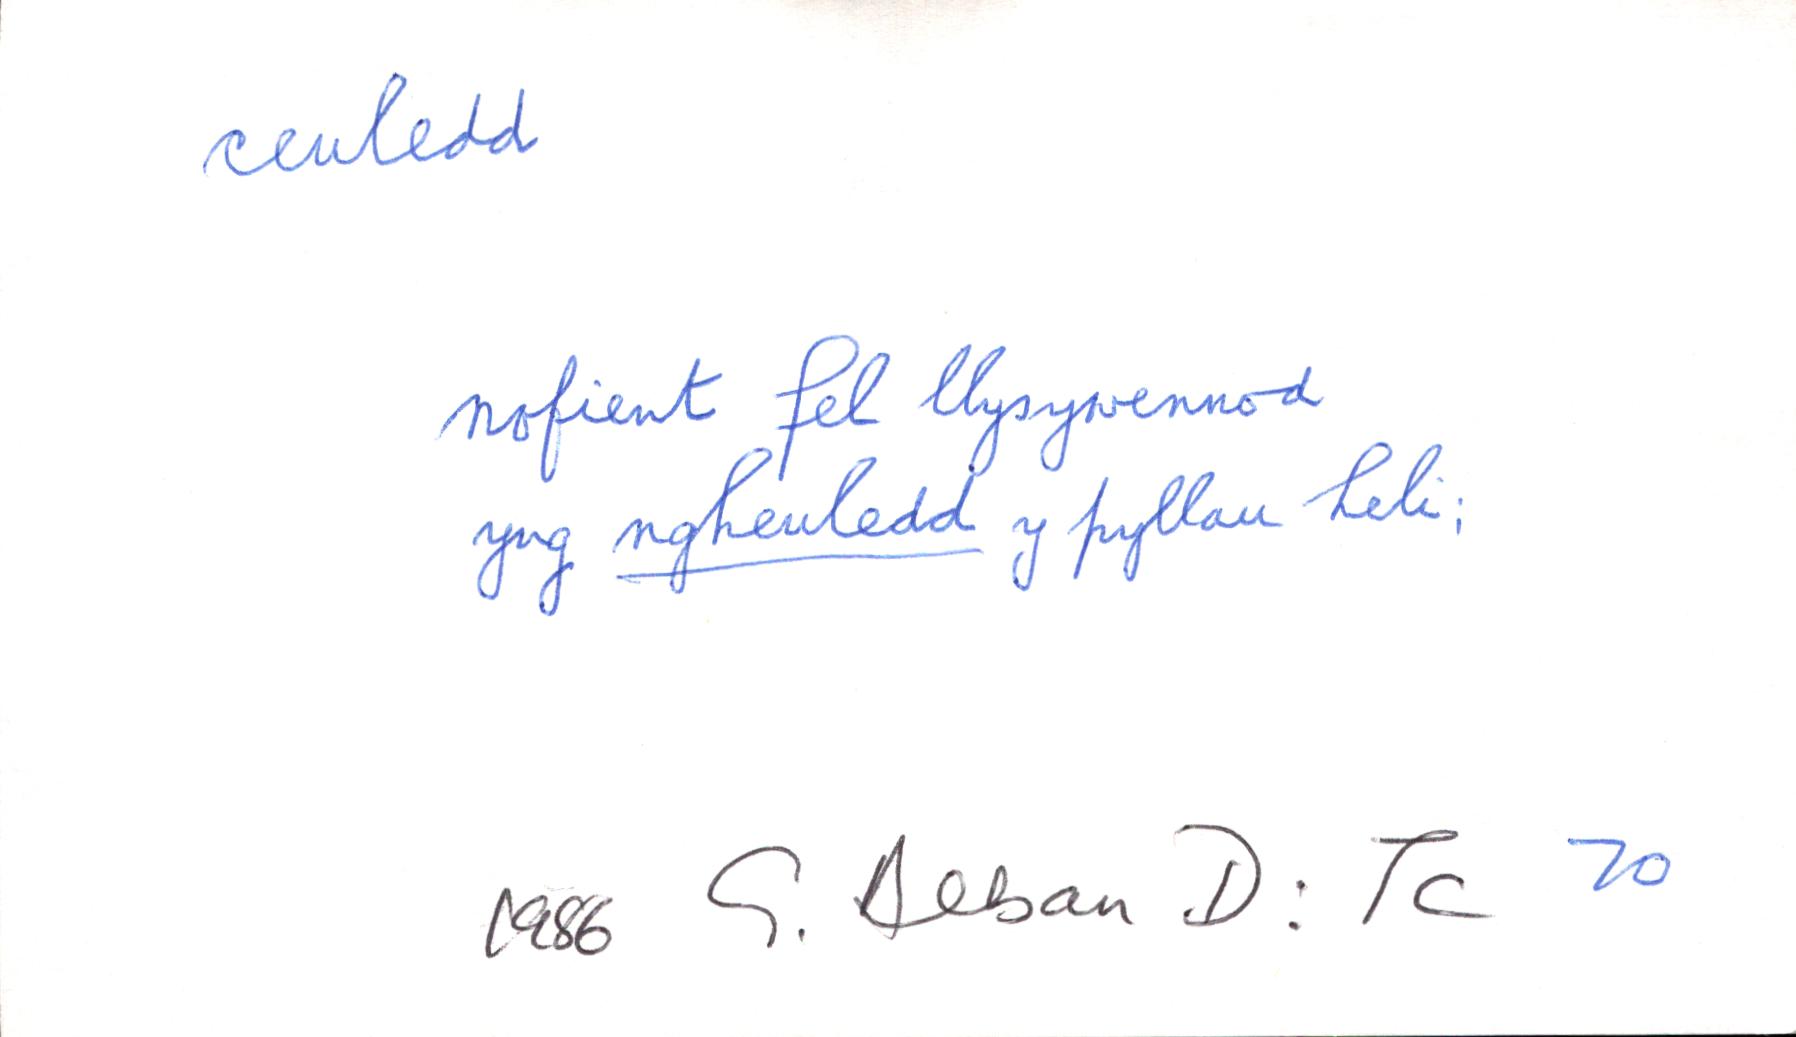 ceuledd
nofient fel llysywennod
yng ngheuledd y pyllau heli;
1986 G. Alban D: TC 70